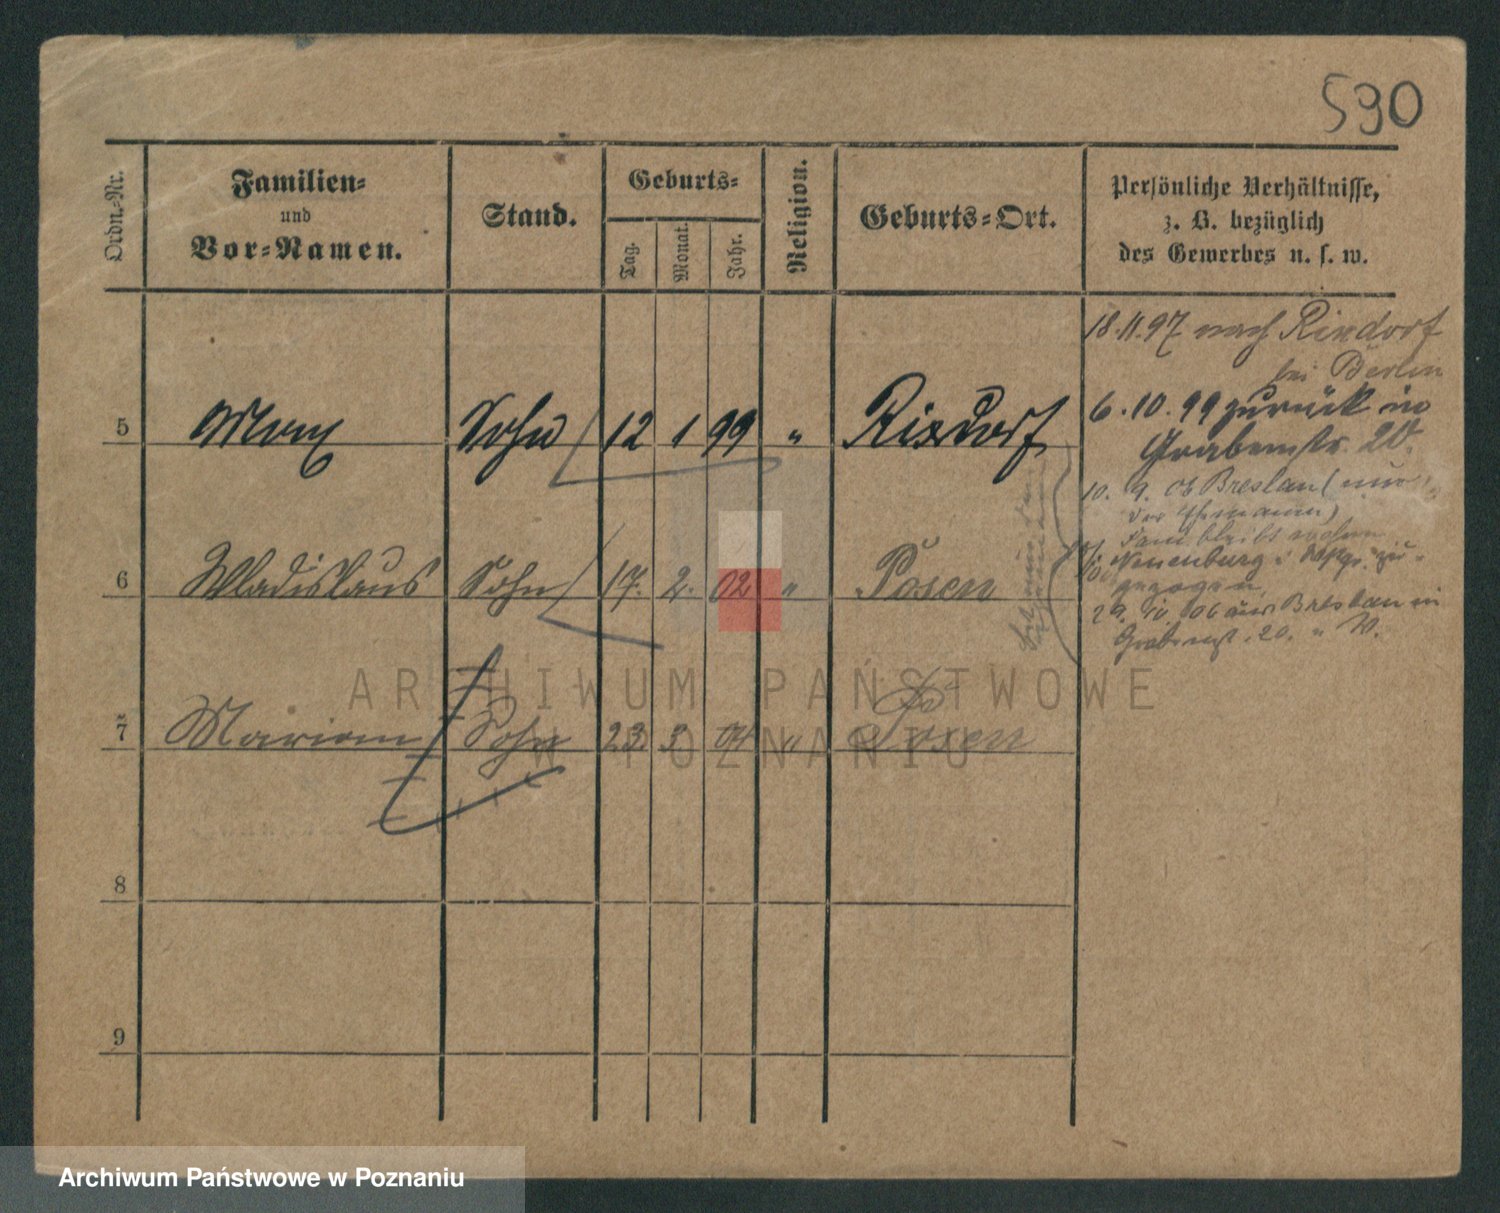 590
Ordn.-Nr.
Familien-
und
Vor-Namen.
Stand.
Geburts-
Tag.
Monat.
Jahr.
Religion.
Geburts-Ort.
Persönliche Verhältnisse,
z. B. bezüglich
des Gewerbes u. s. w.
18.11.97 nach Rixdorf
bei Berlin
5 Max Sohn 12 1 99 " Rixdorf
6.10.99 zurück in
Grabenstr. 20.
10. 9. 06 Breslau (nur
der Ehemann)
Fam bleibt wohnen
6 Wladislaus Sohn 17. 2. 02 " Posen
Neuenburg i. Wpr. zu-
gezogen.
29. 10. 06 aus Breslau in
Grabenst. 20. " W.
ARCHIWUM PAŃSTWOWE
W POZNANIU
7 Marian Sohn 23 3 04 " Posen
8
9
Archiwum Państwowe w Poznaniu